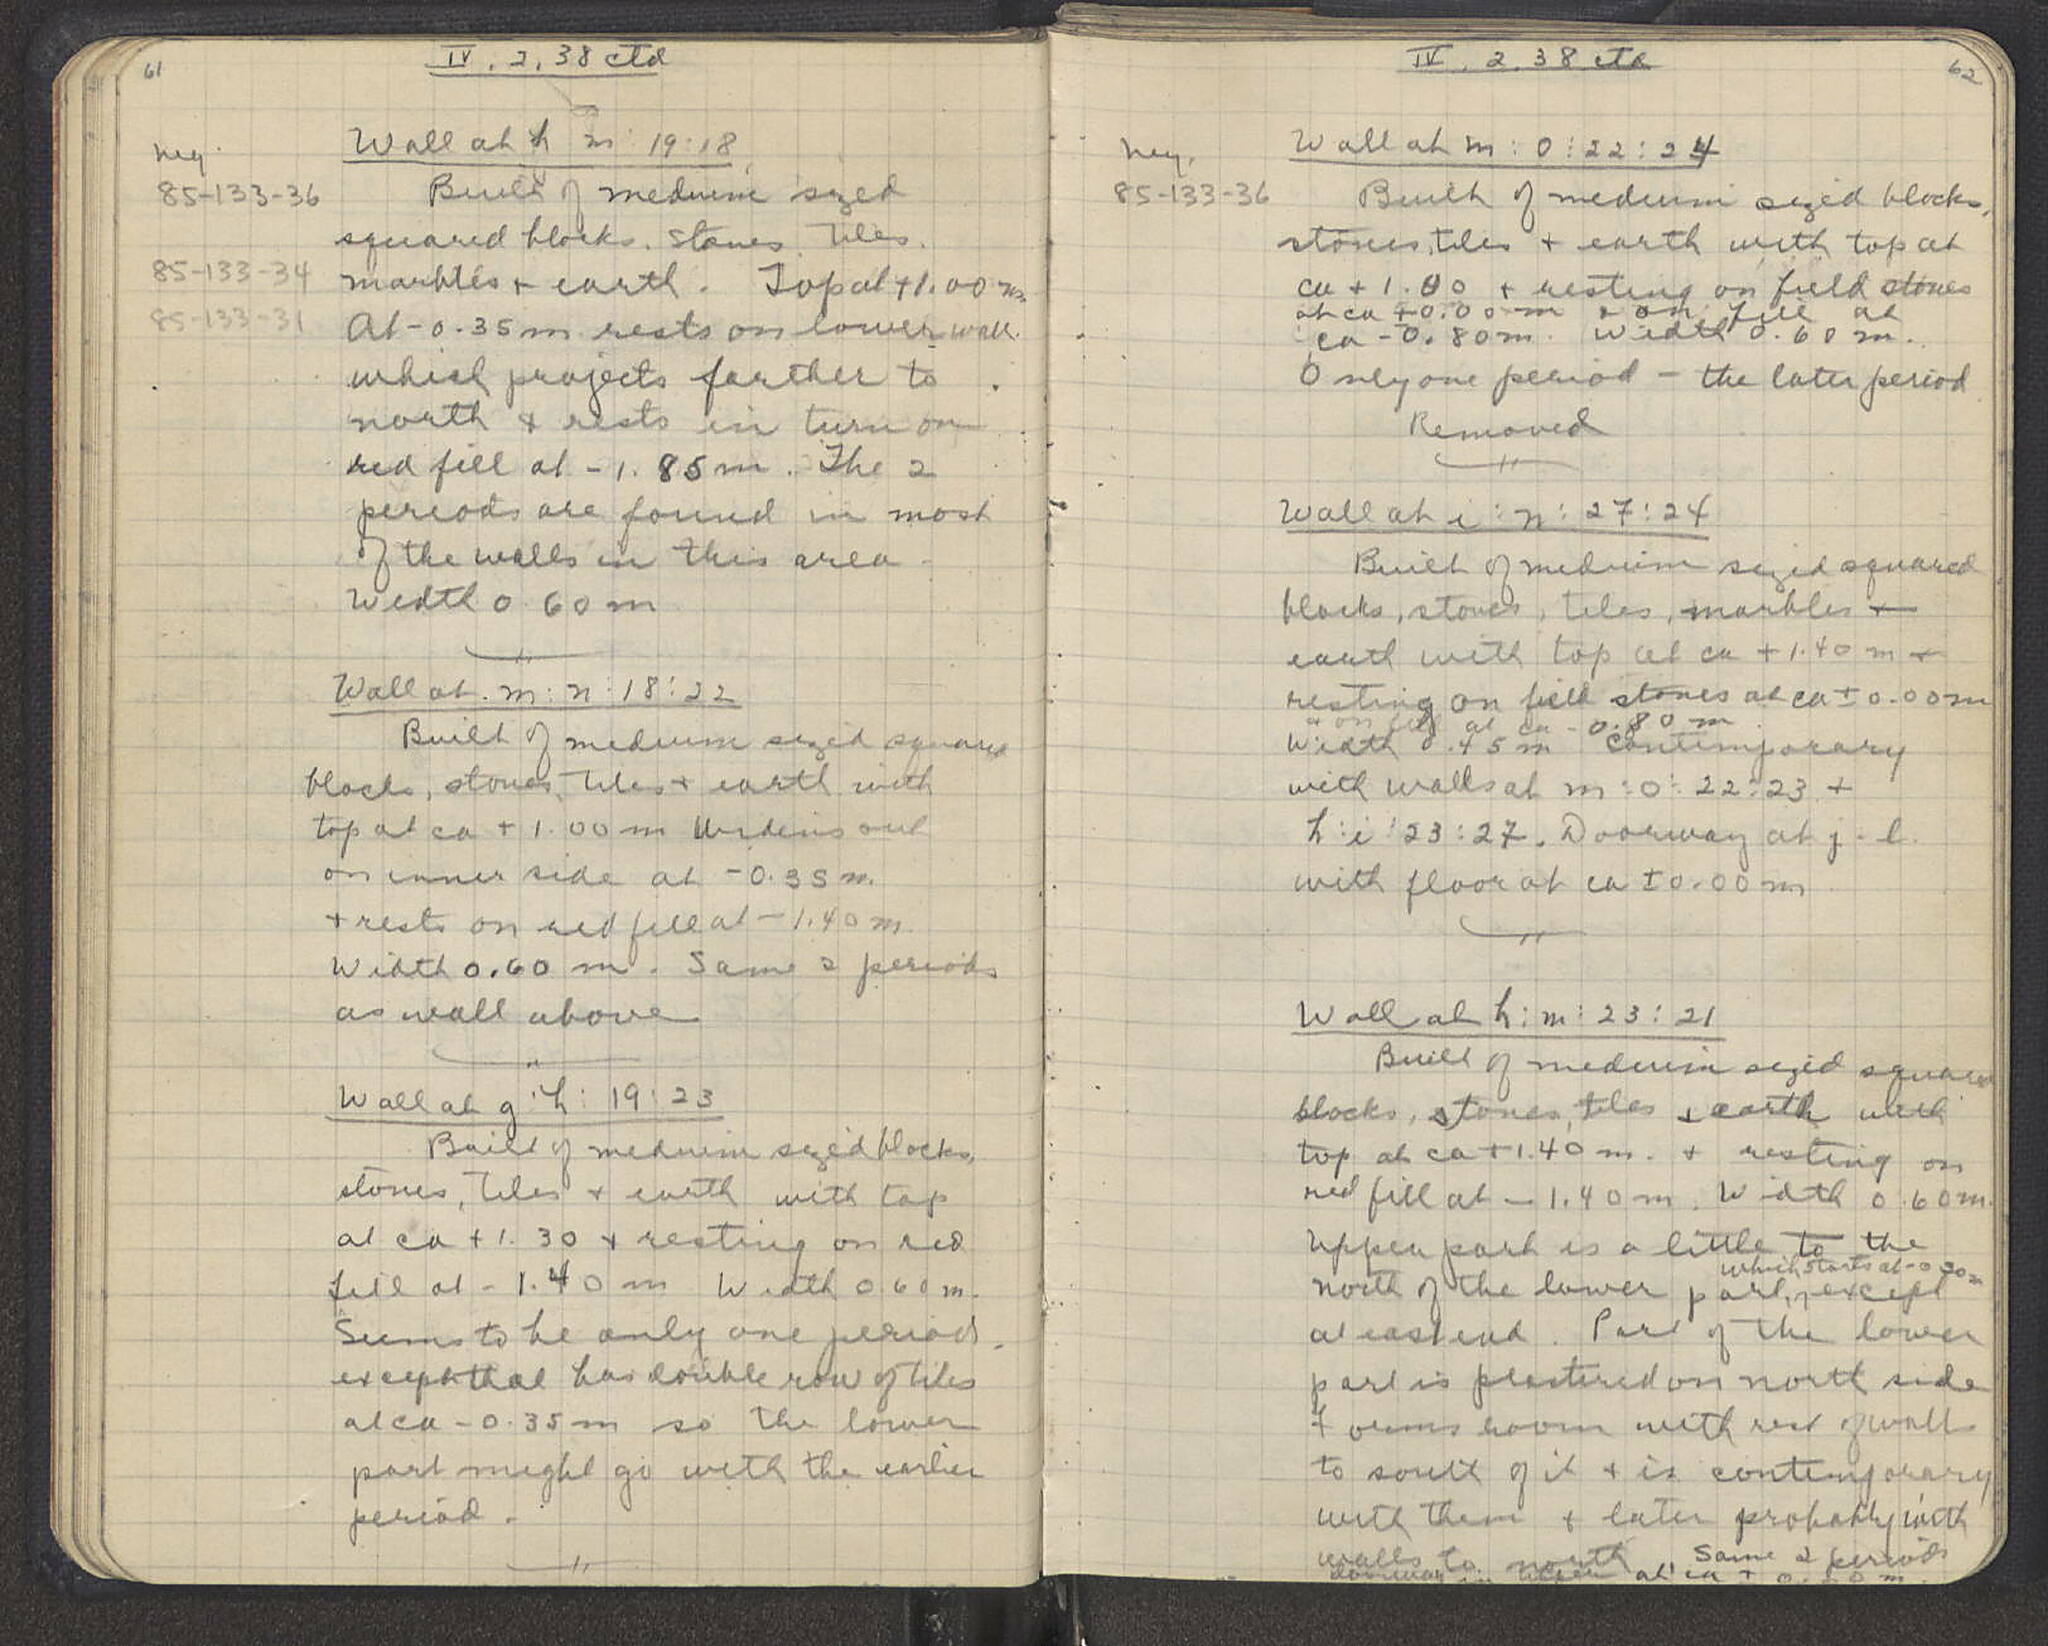 61
IV. 2. 38 ctd
neg.
85-133-36
85-133-34
85-133-31
Wall at h m: 19:18
Built of medium sized
squared blocks. Stones Tiles.
marbles + earth. Top at +1.00 m.
At -0.35 m rests on lower wall.
which projects farther to
north & rests in turn on
red fill at -1.85 m. The 2
periods are found in most
of the walls in this area.
Width 0.60 m
Wall at m:n:18:22
Built of medium sized squared
blocks, stones, tiles + earth with
top at ca +1.00 m Widens out
on inner side at -0.35 m.
+ rests on red fill at -1.40 m.
Width 0.60 m. Same 2 periods
as wall above
Wall at g:h: 19:23
Built of medium sized blocks,
stones, tiles + earth with top
at ca +1.30 + resting on red
fill at -1.40 m Width 0.60 m.
Seems to be only one period.
except that has double row of tiles
at ca -0.35 m so the lower
part might go with the earlier
period.
62
IV. 2. 38 ctd
neg.
85-133-36
Wall at m:0:22:24
Built of medium sized blocks,
stones, tiles + earth with top at
ca +1.00 + resting on field stones
at ca ±0.00 m & on fill at
ca -0.80 m. Width 0.60 m.
Only one period - the later period
Removed
Wall at i:n:27:24
Built of medium sized squared
blocks, stones, tiles, marbles +
earth with top at ca +1.40 m +
resting on field stones at ca ±0.00 m
+ on fill at ca -0.80 m
Width 0.45 m Contemporary
with walls at m:0:22:23 +
h:i:23:27. Doorway at j-l.
with floor at ca ±0.00 m
Wall at h:m:23:21
Built of medium sized squared
blocks, stones, tiles + earth with
top at ca +1.40 m. + resting on
red fill at -1.40 m. Width 0.60 m.
Upper part is a little to the
which starts at -0.30 m
north of the lower part, except
at east end. Part of the lower
part is plastered on north side
Forms room with rest of walls
to south of it + is contemporary
with them + later probably with
walls to north. Same 2 periods
at ca +